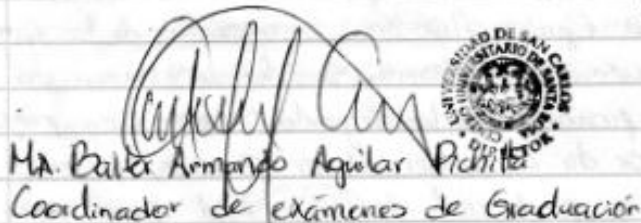 UNIVERSIDAD DE SAN CARLOS
CENTRO UNIVERSITARIO DE SANTA ROSA
DIRECTOR
MA. Balter Armando Aguilar Pichilla
Coordinador de exámenes de Graduación